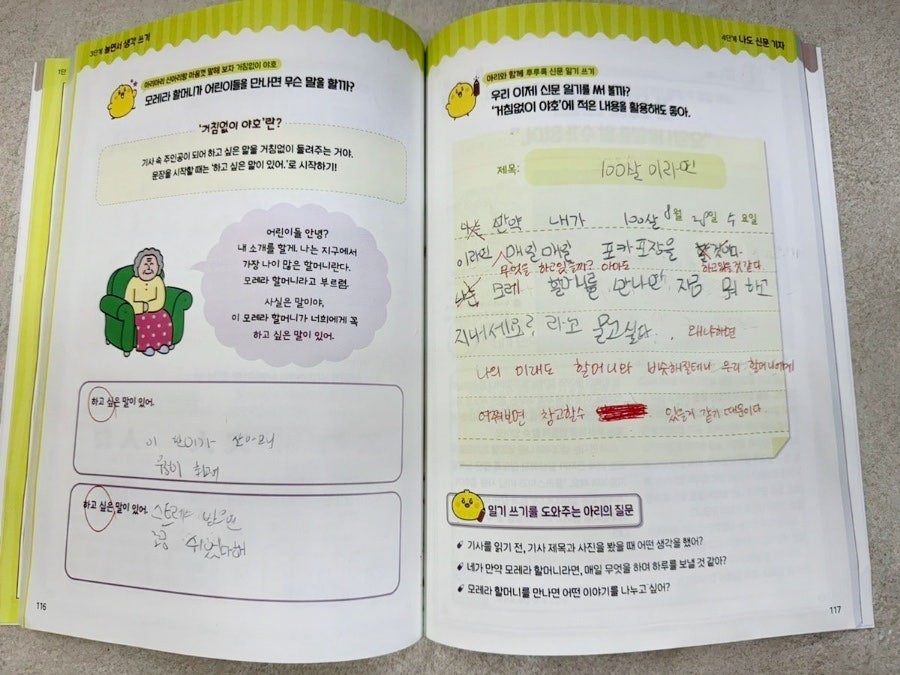 3단계 놀면서 생각 쓰기
아리아리 신아리랑 마음껏 말해 보자 거침없이 야호
모레라 할머니가 어린이들을 만나면 무슨 말을 할까?
'거침없이 야호'란?
기사 속 주인공이 되어 하고 싶은 말을 거침없이 들려주는 거야.
문장을 시작할 때는 '하고 싶은 말이 있어.'로 시작하기!
어린이들 안녕?
내 소개를 할게. 나는 지구에서
가장 나이 많은 할머니란다.
모레라 할머니라고 부르렴.
사실은 말이야,
이 모레라 할머니가 너희에게 꼭
하고 싶은 말이 있어.
하고 싶은 말이 있어.
하고 싶은 말이 있어. 스트레스 받으면
116
4단계 나도 신문 기자
아리와 함께 후루룩 신문 일기 쓰기
우리 이제 신문 일기를 써 볼까?
'거침없이 야호'에 적은 내용을 활용해도 좋아.
제목: 100살 이라면
만약 내가 100살 8월 28일 수요일
이라면 매일매일 포카포장을
무엇을 하고있을까? 아마도 하고있을것 같다
모레 할머니를 만나면 지금 뭐 하고
지내세요? 라고 묻고싶다. 왜냐하면
나의 미래도 할머니와 비슷해질테니 우리 할머니에게
여쭤보면 참고할수 있을거 같기 때문이다
일기 쓰기를 도와주는 아리의 질문
기사를 읽기 전, 기사 제목과 사진을 봤을 때 어떤 생각을 했어?
네가 만약 모레라 할머니라면, 매일 무엇을 하며 하루를 보낼 것 같아?
모레라 할머니를 만나면 어떤 이야기를 나누고 싶어?
117